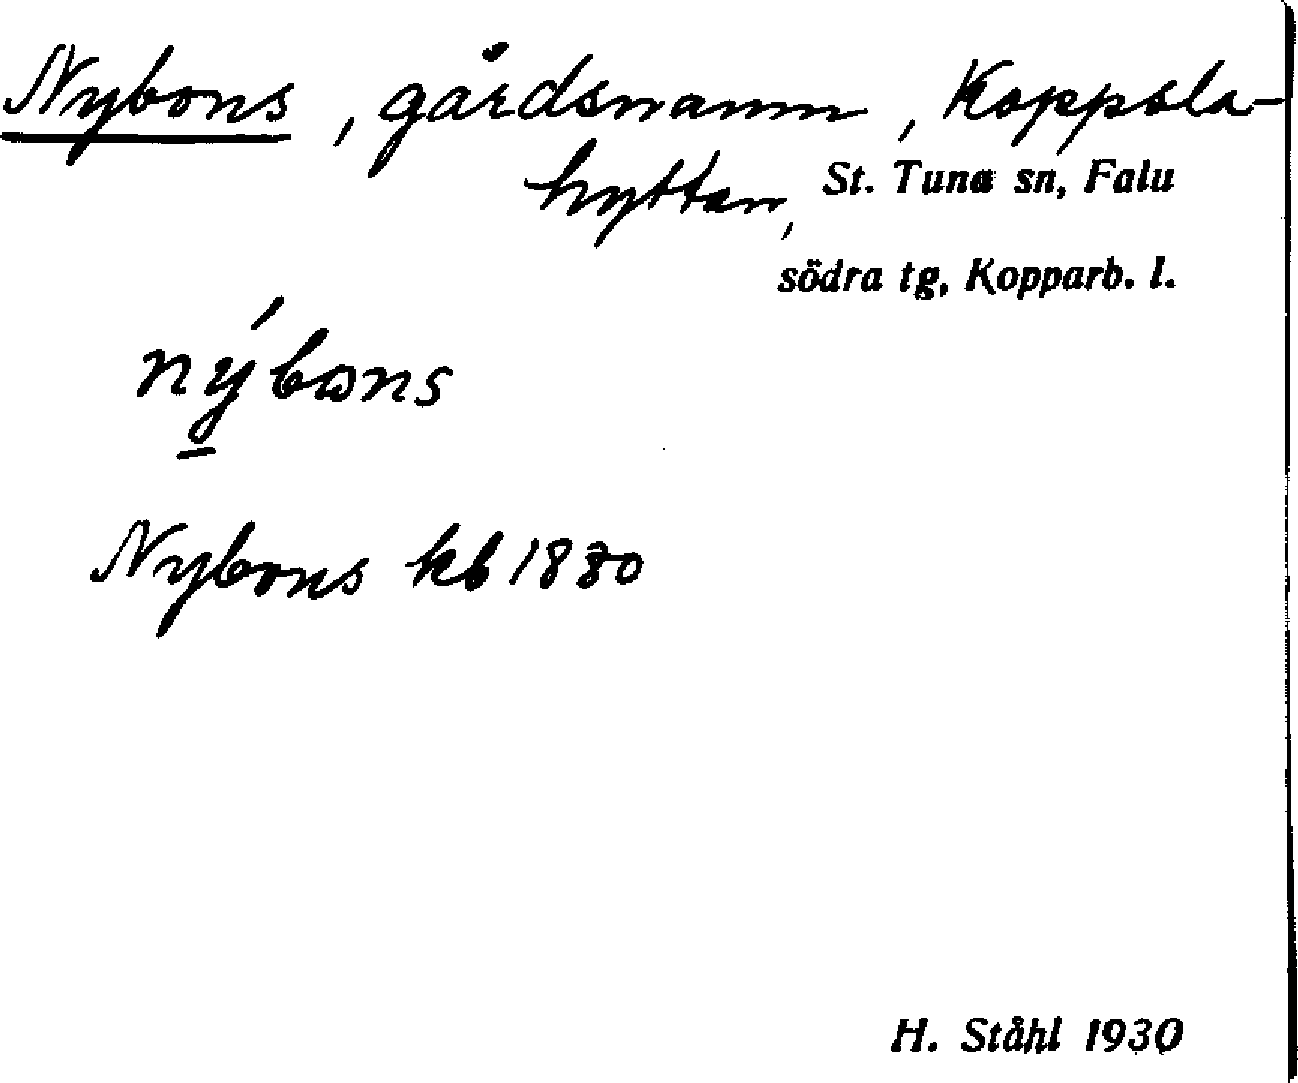 Nybons, gårdsnamn, Koppsla-
hyttan, St. Tuna sn, Falu
södra tg, Kopparb. l.
nýbωns
Nybons kb 1880
H. Ståhl 1930